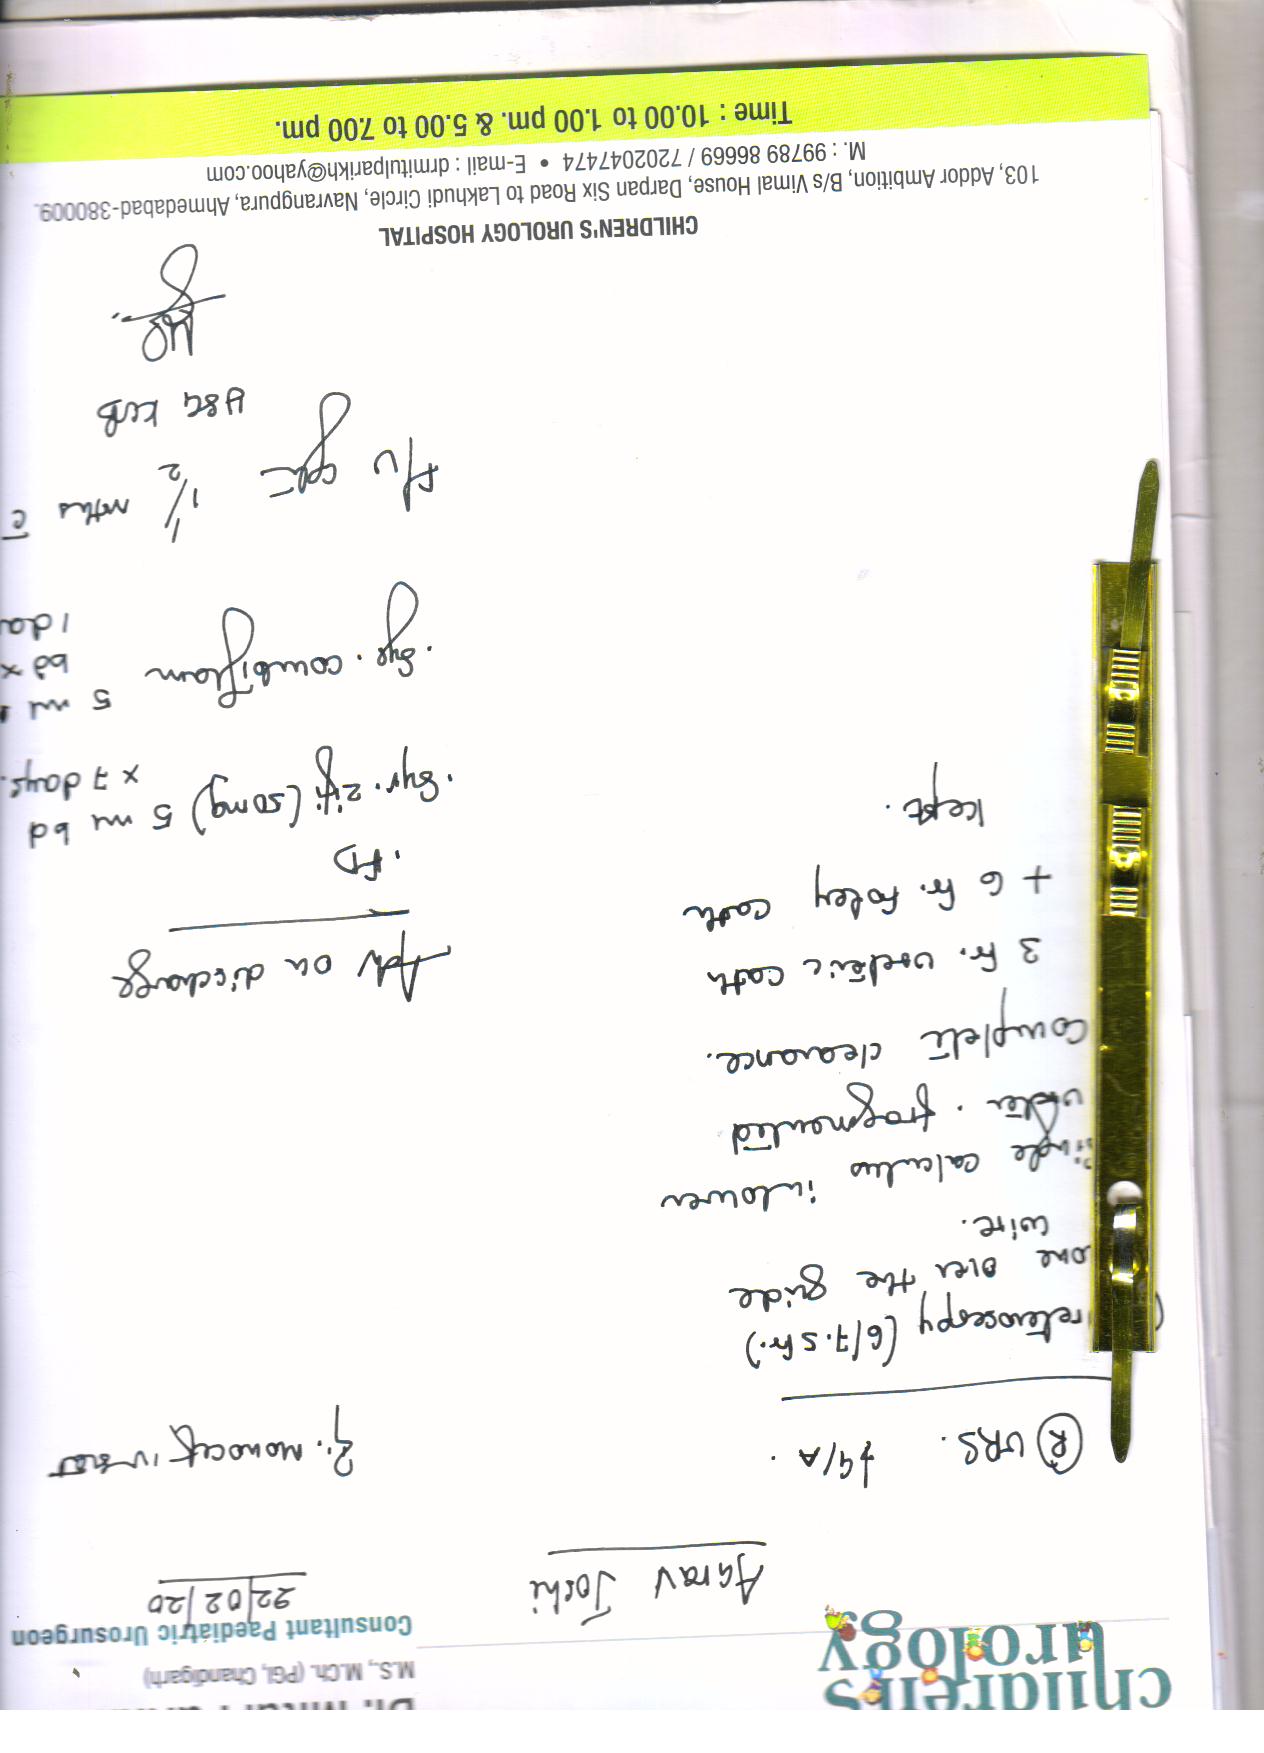 children's
urology
M.S., M.Ch. (PGI, Chandigarh)
Consultant Paediatric Urosurgeon
Aarav Joshi
22/02/20
R URS. ↓ G/A.
Monocef iv
reteroscopy (6/7.5 fr.)
one over the guide
wire.
single calculus in lower
ureter. fragmented
complete clearance.
3 Fr. ureteric cath
+ 6 Fr. Foley cath
kept.
Adv on discharge
. FD
. Syr. Zifi (50mg) 5 ml bd
x 7 days.
. Syr. combiflam 5 ml
bd x
1 da
f/u after 1 1/2 mths c̄
USG KUB
CHILDREN'S UROLOGY HOSPITAL
103, Addor Ambition, B/s Vimal House, Darpan Six Road to Lakhudi Circle, Navrangpura, Ahmedabad-380009.
M. : 99789 86669 / 7202047474 • E-mail : drmitulparikh@yahoo.com
Time : 10.00 to 1.00 pm. & 5.00 to 7.00 pm.